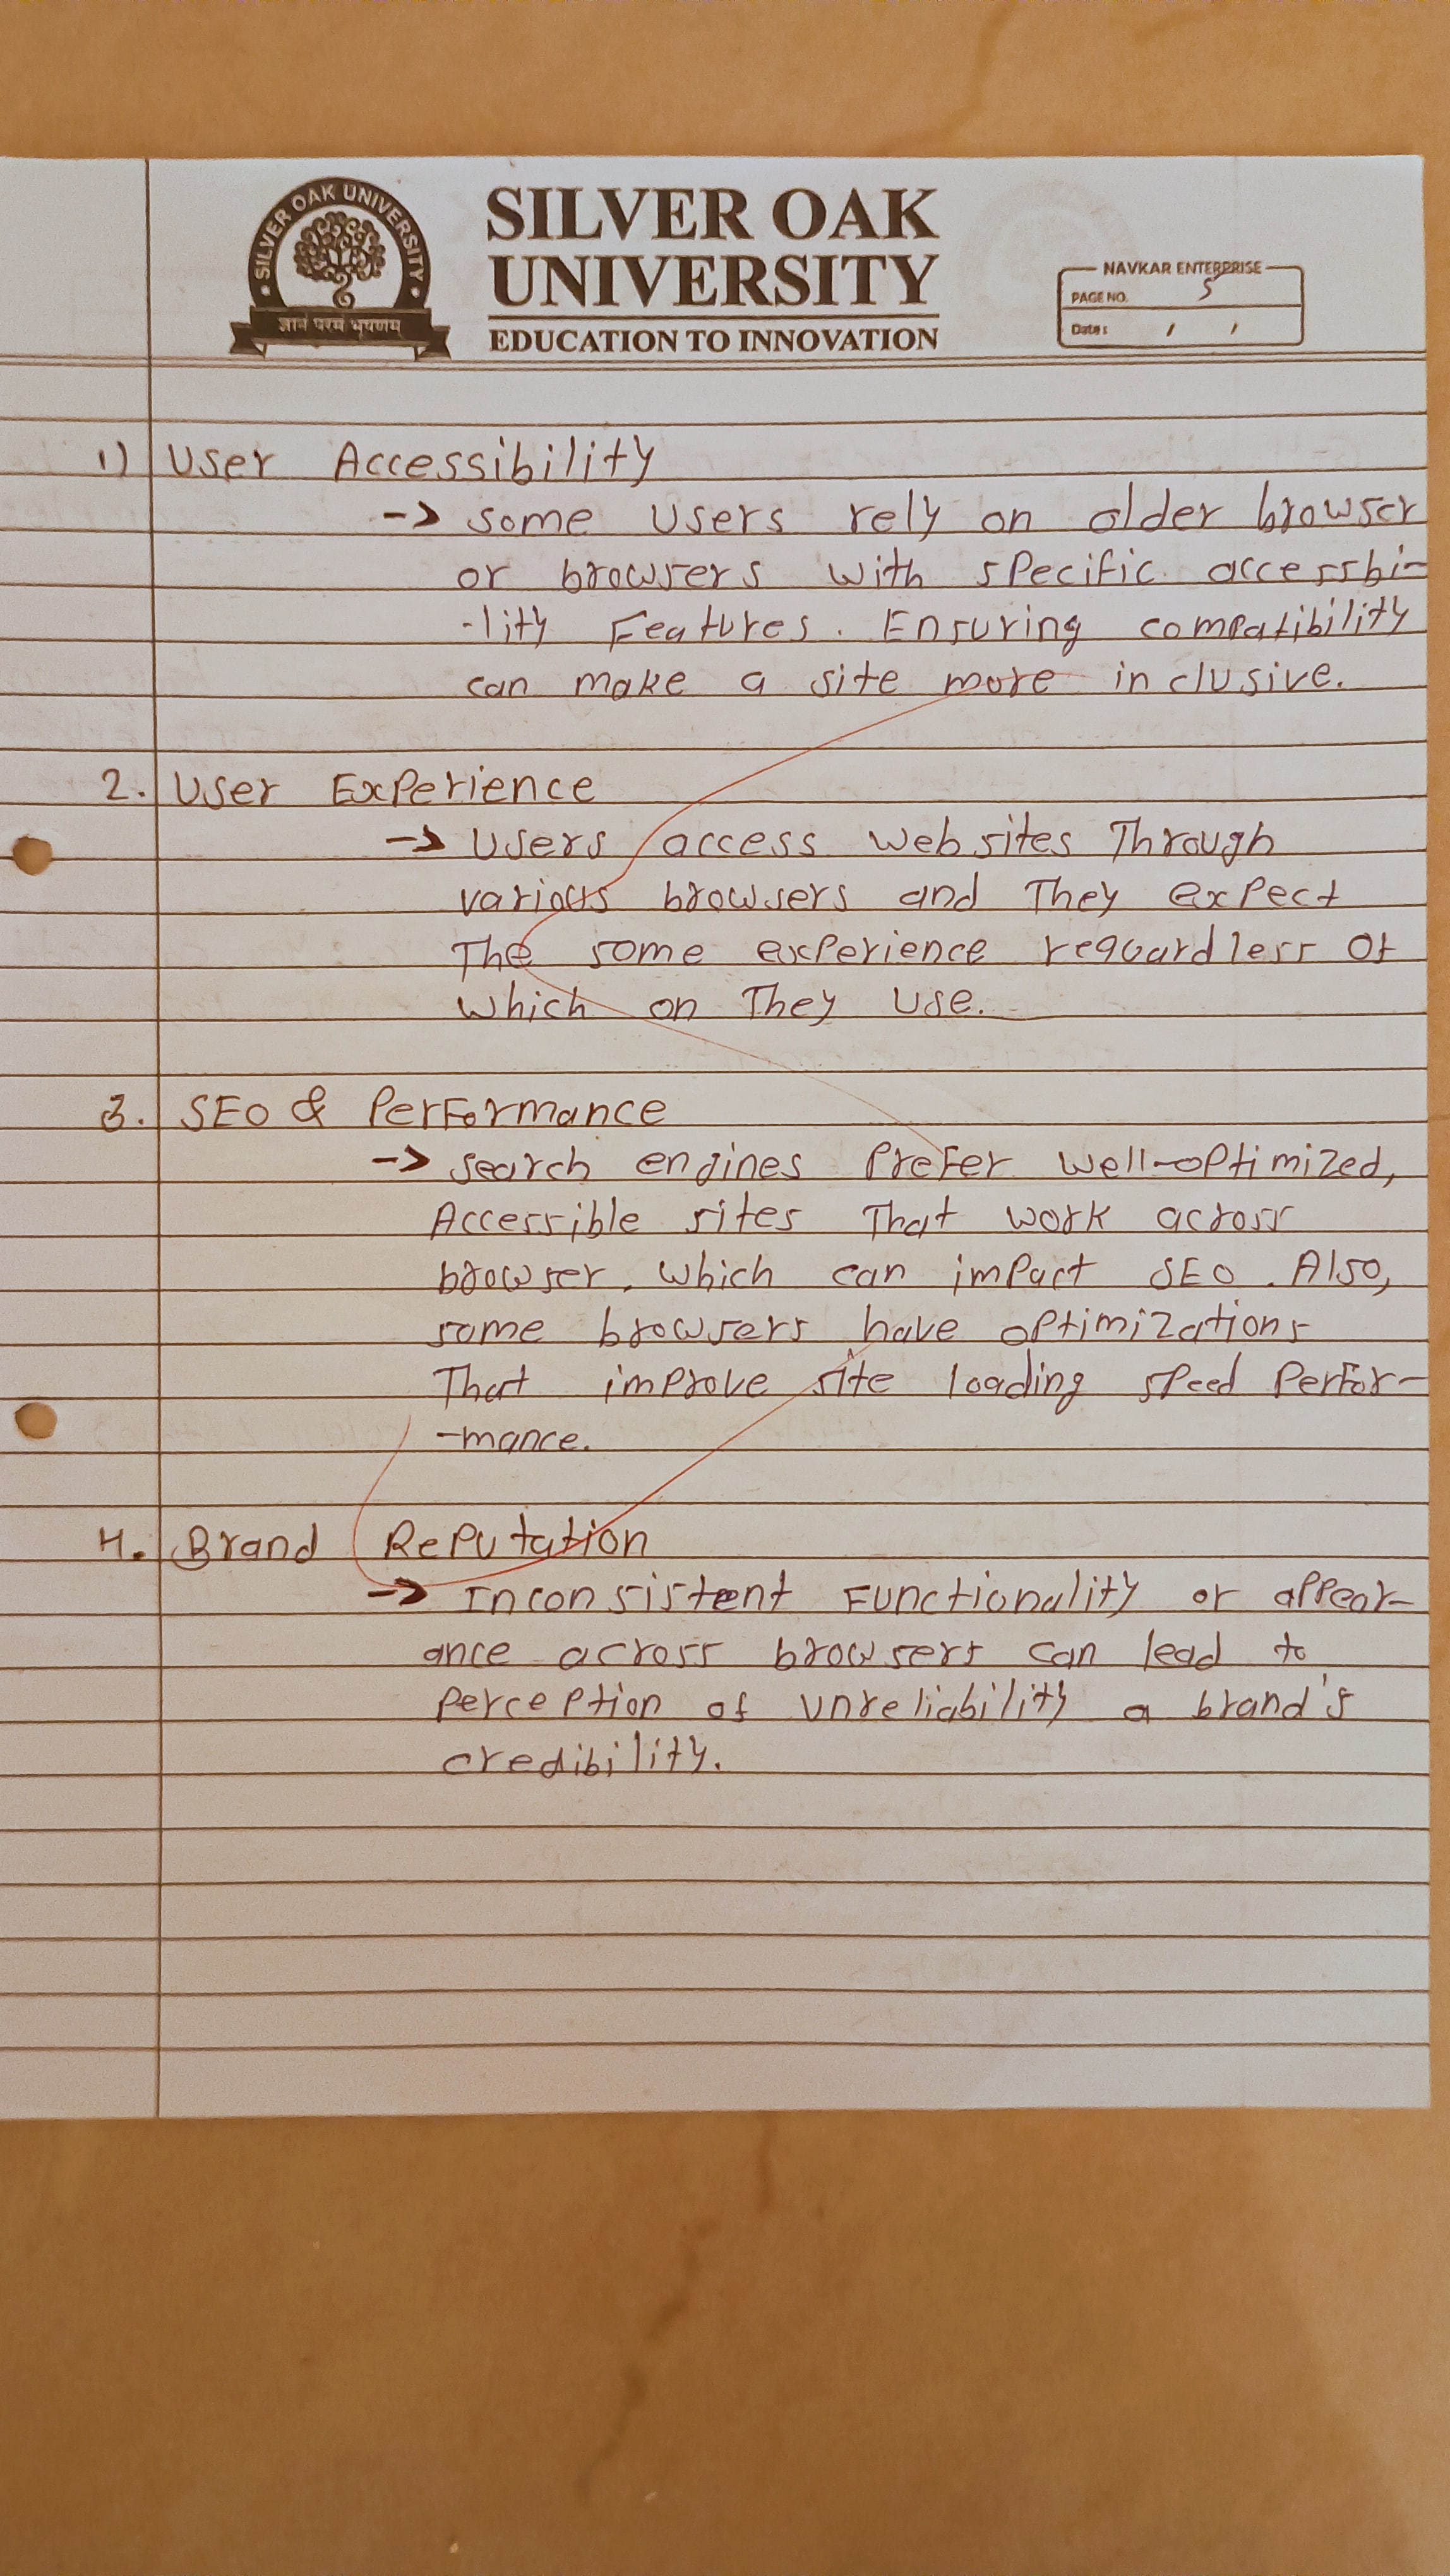 SILVER OAK UNIVERSITY
ज्ञानं परमं भूषणम्
SILVER OAK
UNIVERSITY
EDUCATION TO INNOVATION
NAVKAR ENTERPRISE
PAGE NO. 5
Date: / /
1) User Accessibility
-> some users rely on older browser
or browsers with specific accessbi-
-lity Features. Ensuring compatibility
can make a site more inclusive.
2. User Experience
-> Users access websites Through
various browsers and They expect
The some experience reguardless of
which on They use.
3. SEO & Performance
-> search engines Prefer well-optimized,
Accessible sites That work across
browser, which can impact SEO. Also,
some browsers have optimizations
That improve site loading speed Perfor-
-mance.
4. Brand Reputation
-> Inconsistent Functionality or appear-
ance across browsers can lead to
perception of unreliability a brand's
credibility.